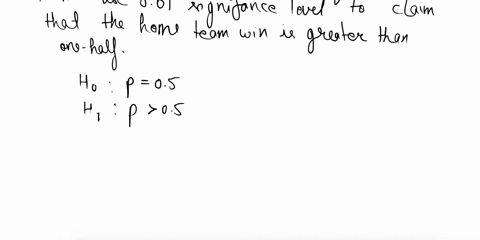 0.01 significance level to claim
that the home team win is greater than
one-half.
H₀ : p = 0.5
H₁ : p > 0.5